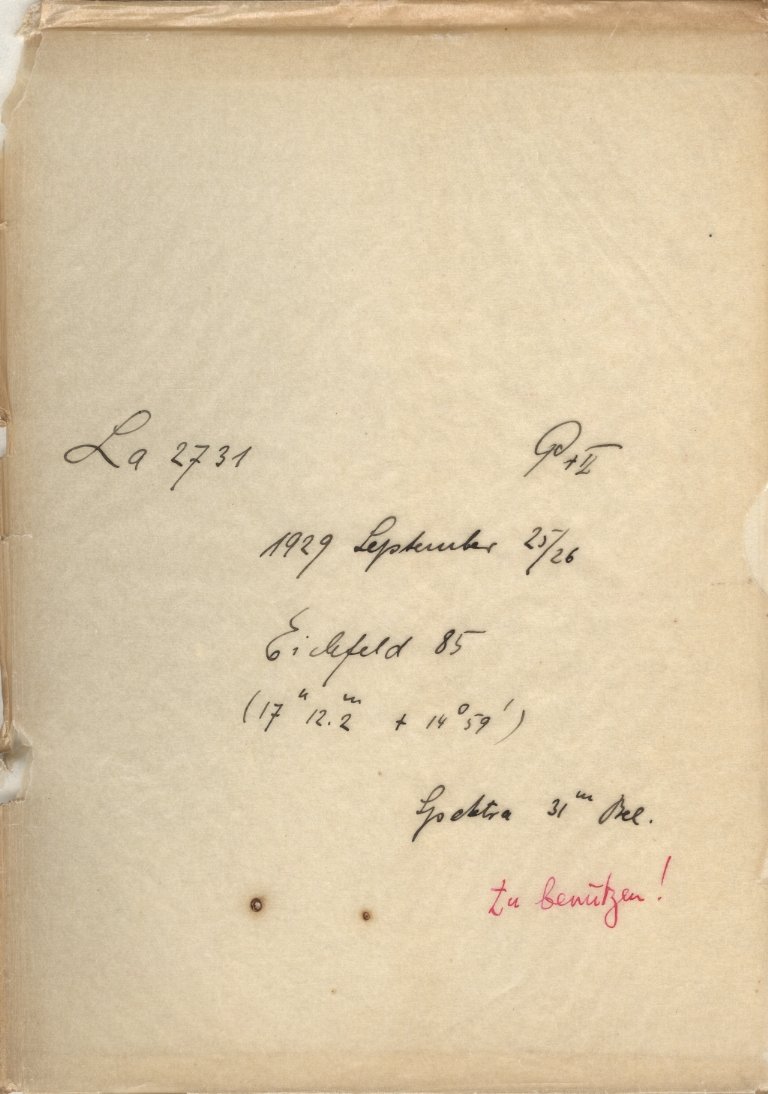 La 2731
1929 September 25/26
Eichfeld 85
(17ʰ 12.2ᵐ + 14° 59')
Spektra 31ᵐ Bel.
zu benützen!